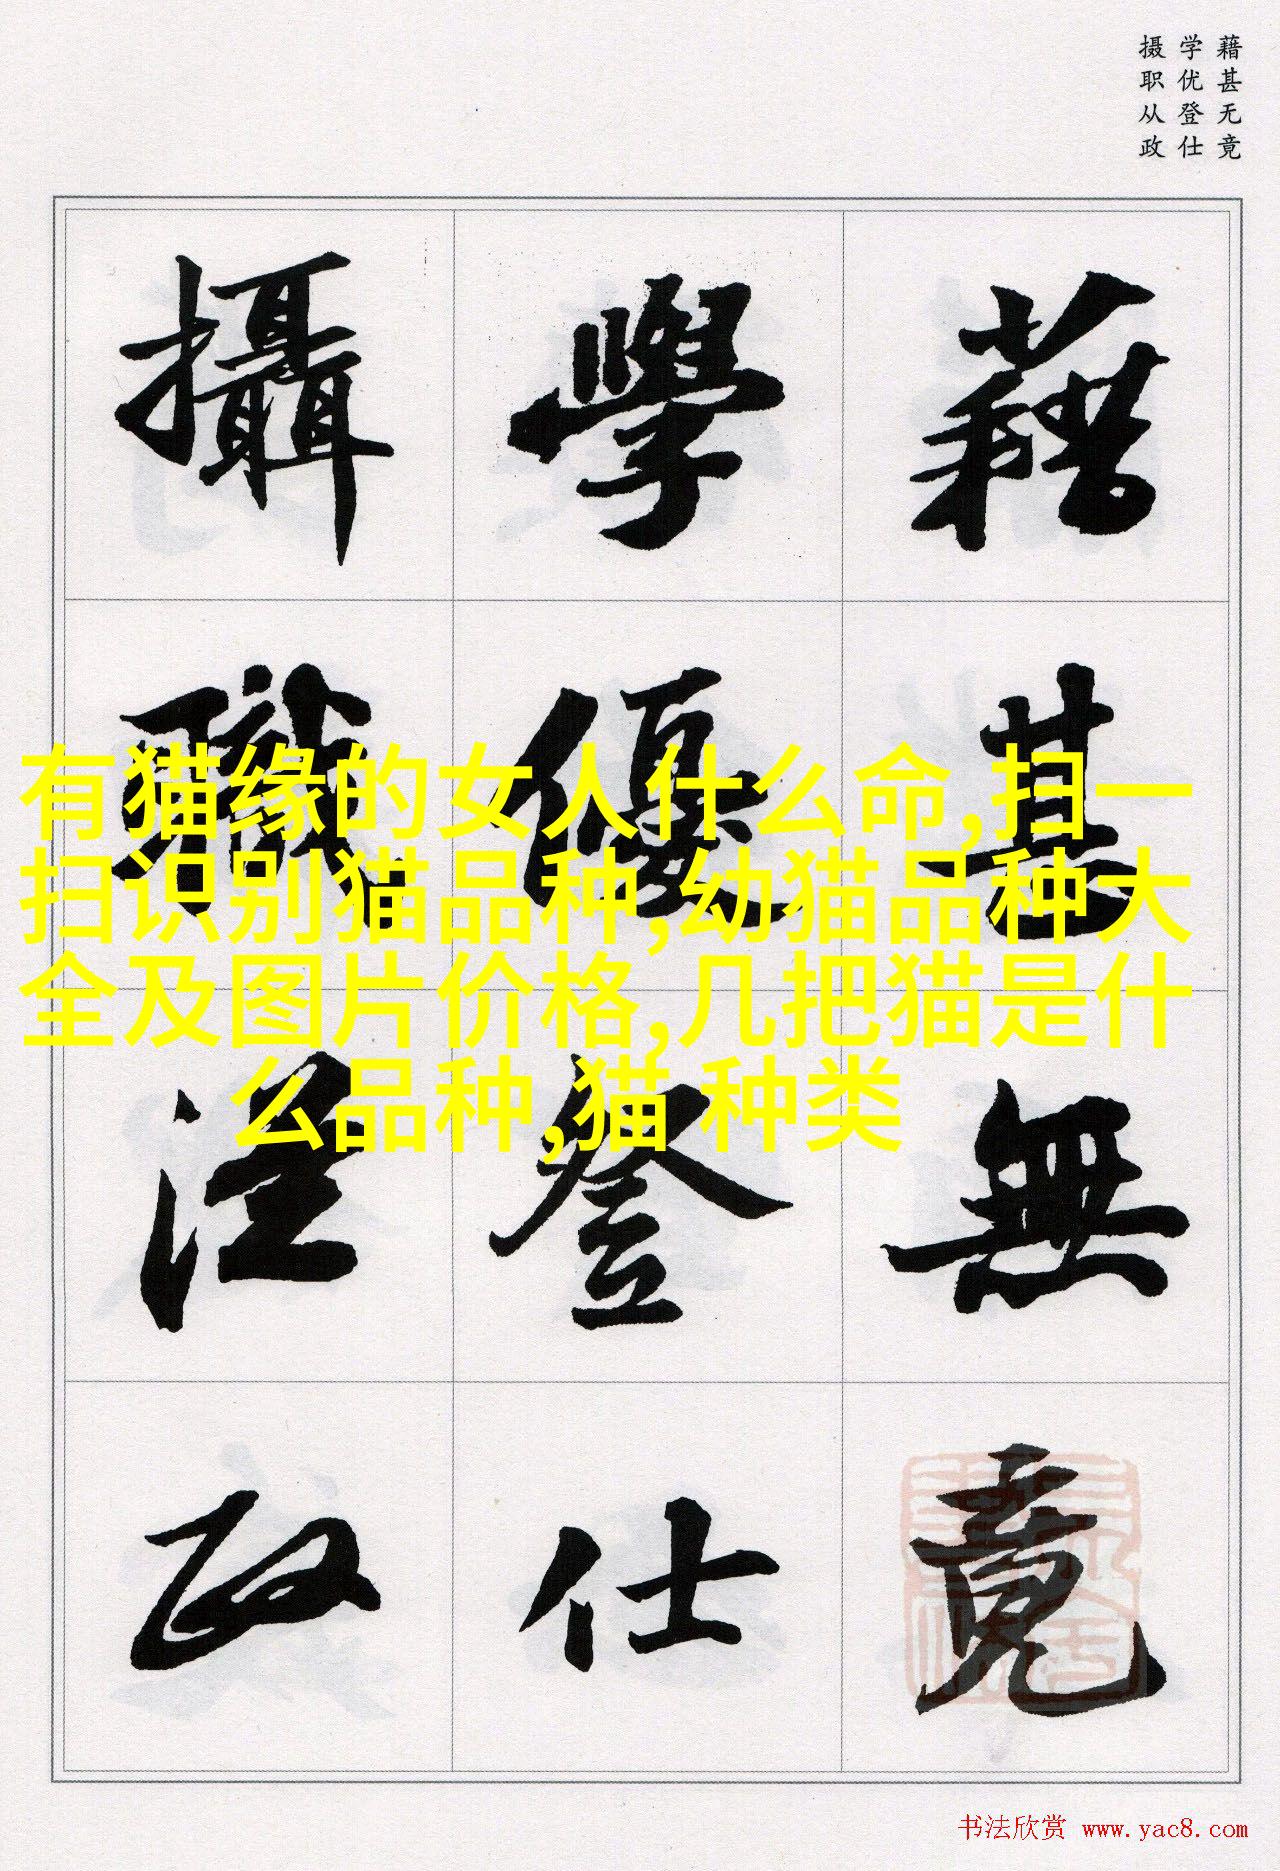 藉甚无竟
学优登仕
摄职从政
藉甚無竟
學優登仕
攝職從政
有猫缘的女人什么命,扫一
扫识别猫品种,幼猫品种大
全及图片价格,几把猫是什
么品种,猫 种类
书法欣赏 www.yac8.com